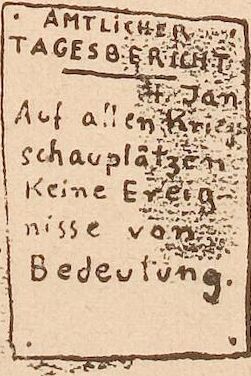 AMTLICHER
TAGESBERICHT
4. Jan
Auf allen Krieg
schauplätzen
Keine Ereig-
nisse von
Bedeutung.